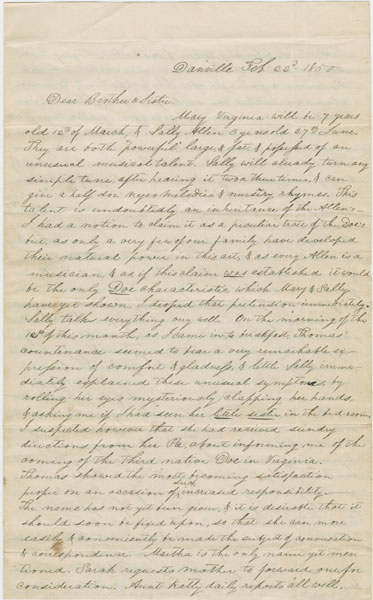 Danville Feb 22d 1850
Dear Brother & Sister
Mary Virginia will be 7 years
old 12th of March, & Sally Allen 3 years old 27th June.
They are both powerful large & fat & possessed of an
unusual musical talent. Sally will already turn any
simple tune after hearing it two or three times, & can
give a half doz negro melodies & nursery rhymes. This
talent is undoubtedly an inheritance of the Allens.
I had a notion to claim it as a peculiar trait of the Does
but as only a very few of our family have developed
their natural power in this art, & as every Allen is a
musician & as if this claim was established it would
be the only Doe characteristic which Mary & Sally
have yet shown, I droped that pretension immediately.
Sally talks everything very well. On the morning of the
of this month, as I came in to breakfast, Thomas'
countenance seemed to bear a very remarkable ex
pression of comfort & gladness, & little Sally imme-
diately explained these unusual symptoms, by
rolling her eyes mysteriously, clapping her hands
& asking me if I had seen her little sister in the bed room.
I suspected however that she had received sundry
directions from her Pa, about informing me of the
coming of the third native Doe in Virginia.
Thomas showed the most becoming satisfaction
proper on an occasion of such increased responsibility.
The name has not yet been given, & it is desirable that it
should soon be fixed upon, so that she can more
easily & conveniently be made the subject of conversation
& correspondence. Martha is the only name yet men
tioned. Sarah requests mother to forward one for
consideration. Aunt Katty daily reports all well.